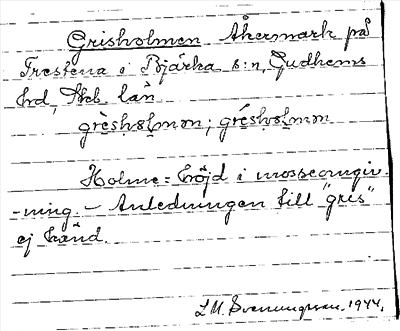 Grisholmen Åkermark på
Trestena i Bjärka s:n, Gudhems
hd, Skb. län
grèshol̥mən; gréshol̥mən
Holme = höjd i mosseomgiv-
-ning. - Anledningen till "gris"
ej känd.
L.M. Svenungsson. 1944.